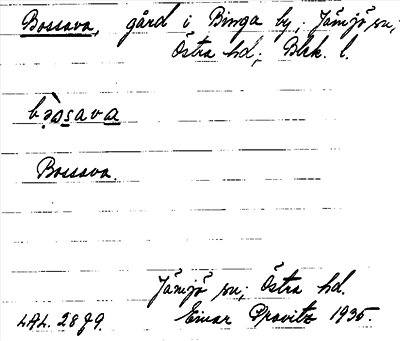 Bossava, gård i Binga by, Jämjö sn;
Östra hd; Blek. l.
Bossava.
Jämjö sn; Östra hd.
Einar 1935.